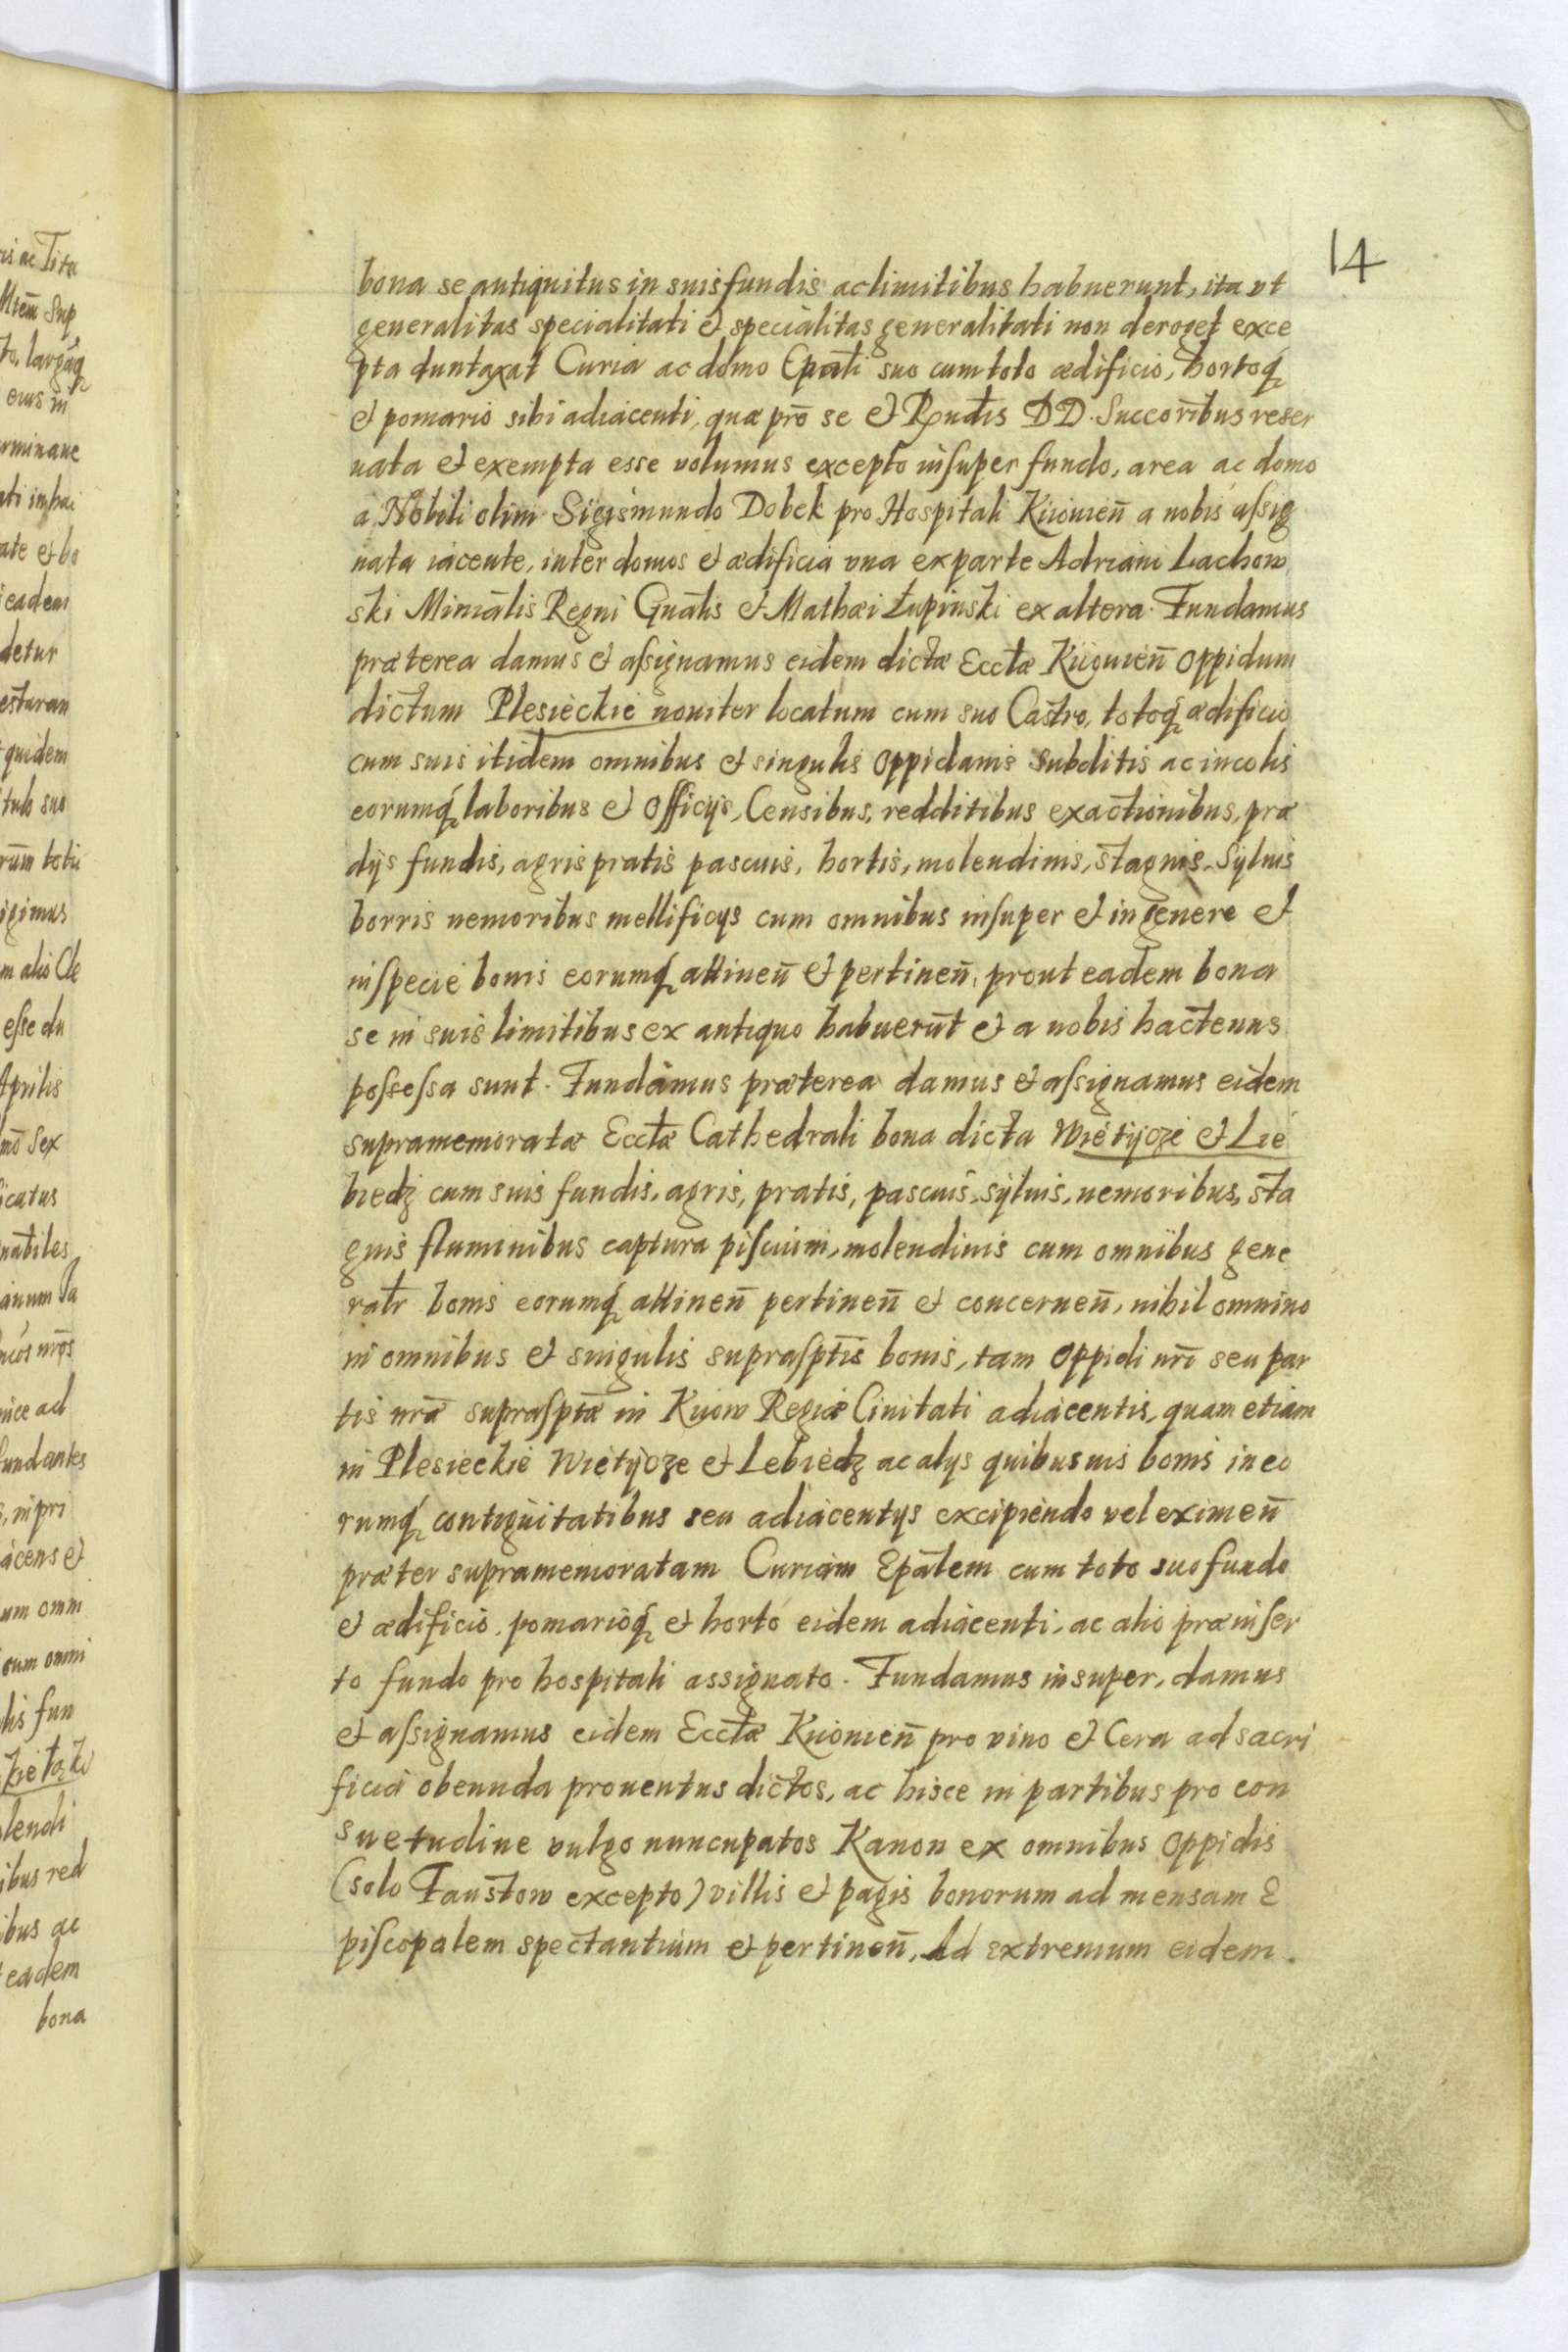 14
bona se antiquitus in suis fundis ac limitibus habuerunt, ita vt
generalitas specialitati et specialitas generalitati non deroget exce
pta duntaxat Curia ac domo Epāli suo cum toto ædificio, hortoq́
et pomario sibi adiacenti, quæ prō se et Rp̄ndis DD. Succorībus reser
uata et exempta esse volumus excepto insuper fundo, area ac domo
a Nobili olim Sigismundo Dobek pro Hospitali Kiiouien̄ a nobis assig
nata iacente, inter domos et ædificia vna ex parte Adriani Lachow
ski Miniālis Regni Gnālis et Mathæi Łupinski ex altera. Fundamus
præterea damus et assignamus eidem dictæ Ecctæ Kiiouien̄ Oppidum
dictum Plesieckie nouiter locatum cum suo Castro, totoq́ ædificio
cum suis itidem omnibus et singulis Oppidanis Subditis ac incolis
eorumq́ laboribus et Officijs, Censibus, redditibus exactionibus, præ
dijs fundis, agris pratis pascuis, hortis, molendinis, stagnis, Syluis
borris nemoribus mellificijs cum omnibus insuper et in genere et
in specie bonis eorumq́ attinen̄ et pertinen̄, prout eadem bona
se in suis limitibus ex antiquo habuerūt et a nobis hactenus
possessa sunt. Fundamus præterea damus et assignamus eidem
supramemoratæ Ecctæ Cathedrali bona dicta Wietijcze et Lie
biedz cum suis fundis, agris, pratis, pascuis, syluis, nemoribus, sta
gnis fluminibus captura piscium, molendinis cum omnibus gene
ratr bonis eorumq́ attinen̄ pertinen̄ et concernen̄, nihil omnino
in omnibus et singulis suprasptīs bonis, tam Oppidi nrī seu par
tis nrǣ suprasptǣ in Kiiow Regiæ Ciuitati adiacentis, quam etiam
in Plesieckie Wietijcze et Lebiedz ac alijs quibusuis bonis in eo
rumq́ contiguitatibus seu adiacentijs excipiendo vel eximen̄
præter supramemoratam Curiam Epālem cum toto suo fundo
et ædificio, pomarioq́ et horto eidem adiacenti, ac alio præinser
to fundo pro hospitali assignato. Fundamus insuper, damus
et assignamus eidem Ecctæ Kiiouien̄ pro vino et Cera ad sacri
ficia obeunda prouentus dictos, ac hisce in partibus pro con
suetudine vulgo nuncupatos Kanon ex omnibus Oppidis
(solo Faustow excepto) villis et pagis bonorum ad mensam E
piscopalem spectantium et pertinen̄, Ad extremum eidem.